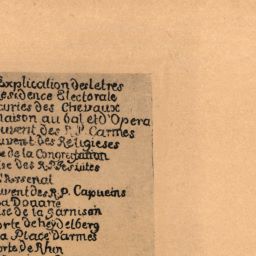 Explication des letres
esidence Electorale
curies des Chevaux
maison au bal et d'Opera
ouvent des P.P Carmes
uvent des Religieses
e de la Congregation
ise des R.P. Jesuites
L'Arsenal
uvent des R.P. Capucins
La Douane
ise de la Garnison
orte de heydelberg
La Place d'armes
orte de Rhin